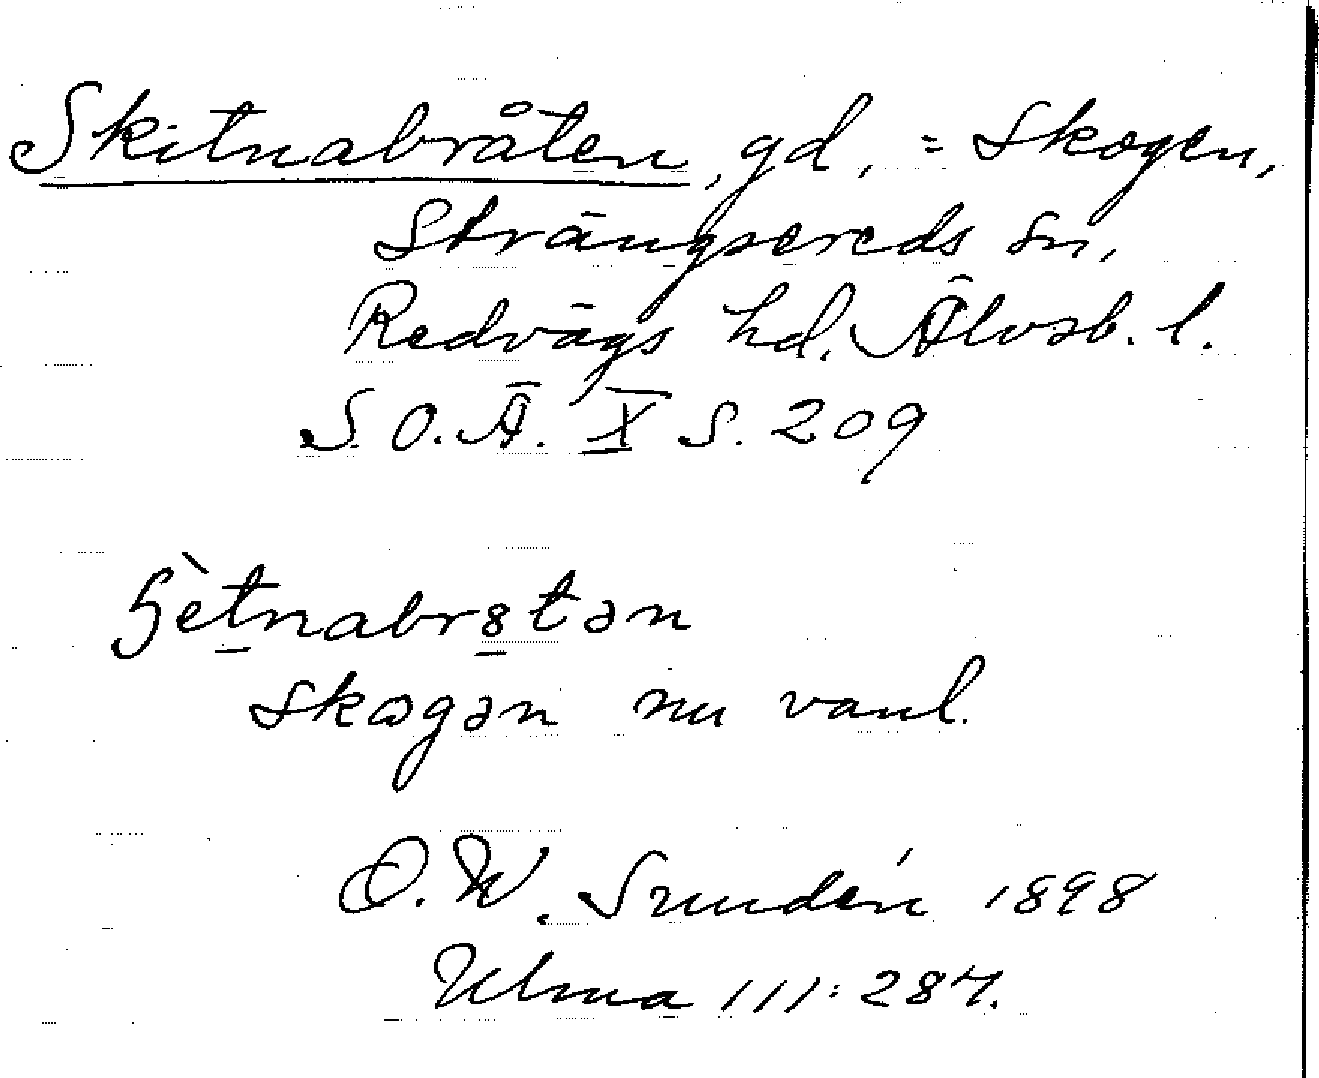 Skitnabråten, gd, = Skogen,
Strängsereds sn,
Redvägs hd. Älvsb. l.
S.O.Ä. X S. 209
ɧètnabr8tən
skogən nu vanl.
O.W. Sundén 1898
Ulma 111:284.